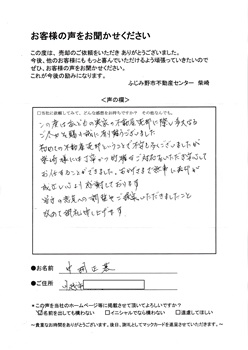 お客様の声をお聞かせください
この度は、売却のご依頼をいただき ありがとうございました。
今後、他のお客様にも もっと喜んでいただけるよう頑張っていきたいので
ぜひ、お客様の声をお聞かせください。
これが今後の励みになります。
ふじみ野市不動産センター 柴崎
<声の欄>
□当社に依頼してみて、どんな感想をお持ちですか? その他なんでも。
この度は
の実家の不動産売却に際し多大なる
ご尽力を賜り誠に有り難うございました
初めての不動産売却ということで不安もございましたが
柴崎様には
ご対応をいただき安心して
お任せすることができました。おかげさまで無事に売却が
感謝しております
求めて御礼申し上げます
●お名前
様
●ご住所
●この声を当社のホームページ等に掲載させて頂いてよろしいですか?
名前を出しても構わない
□イニシャルでなら構わない
□遠慮してほしい
~貴重なお時間をありがとうございます。後日、謝礼としてマックカードを進呈させていただきます。~